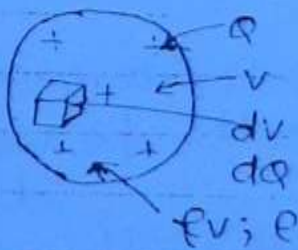 + + Q
+ V
dv
+ + dQ
ρv; ρ